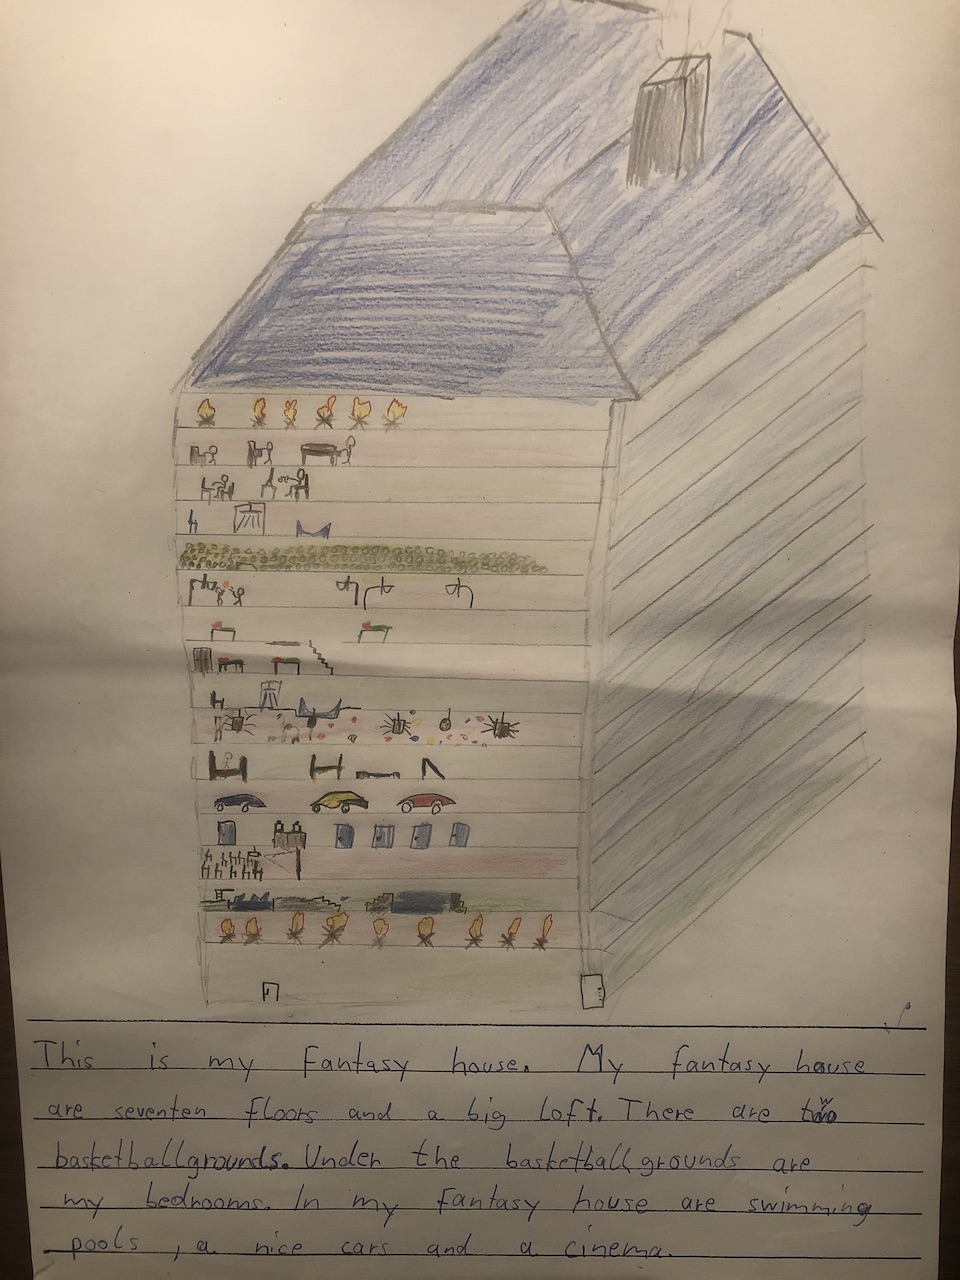 This is my Fantasy house. My fantasy house
are seventen floors and a big Loft. There are two
basketballgrounds. Under the basketballgrounds are
my bedrooms. In my fantasy house are swimming
pools, a nice cars and a cinema.